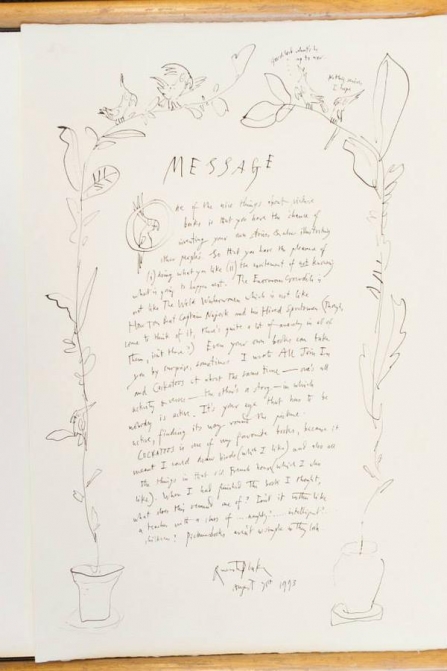 MESSAGE
One of the nice things about picture
books is that you have the chance of
inventing your own stories, & when illustrating
other people's. So that you have the pleasure of
(i) doing what you like (ii) the excitement of not knowing
what is going to happen next. The Enormous Crocodile is
not like The Wild Washerwomen which is not like
How Tom beat Captain Najork and his Hired Sportsmen (Though,
come to think of it, there's quite a lot of anarchy in all of
them, isn't there?) Even your own books can take
you by surprise, sometimes. I wrote All Join In
and Cockatoos at about the same time — one's all
activity & noise — the other's a story — in which
nobody is active. It's your eye that has to be
active, finding its way round the picture.
Cockatoos is one of my favourite books, because it
meant I could draw birds (which I like) and also all
the things in that old French house (which I also
like). When I had finished the book I thought,
what does this remind me of? Isn't it rather like
a teacher with a class of — naughty? — intelligent?
children? Picture books aren't as simple as they look
Quentin Blake
August 1993